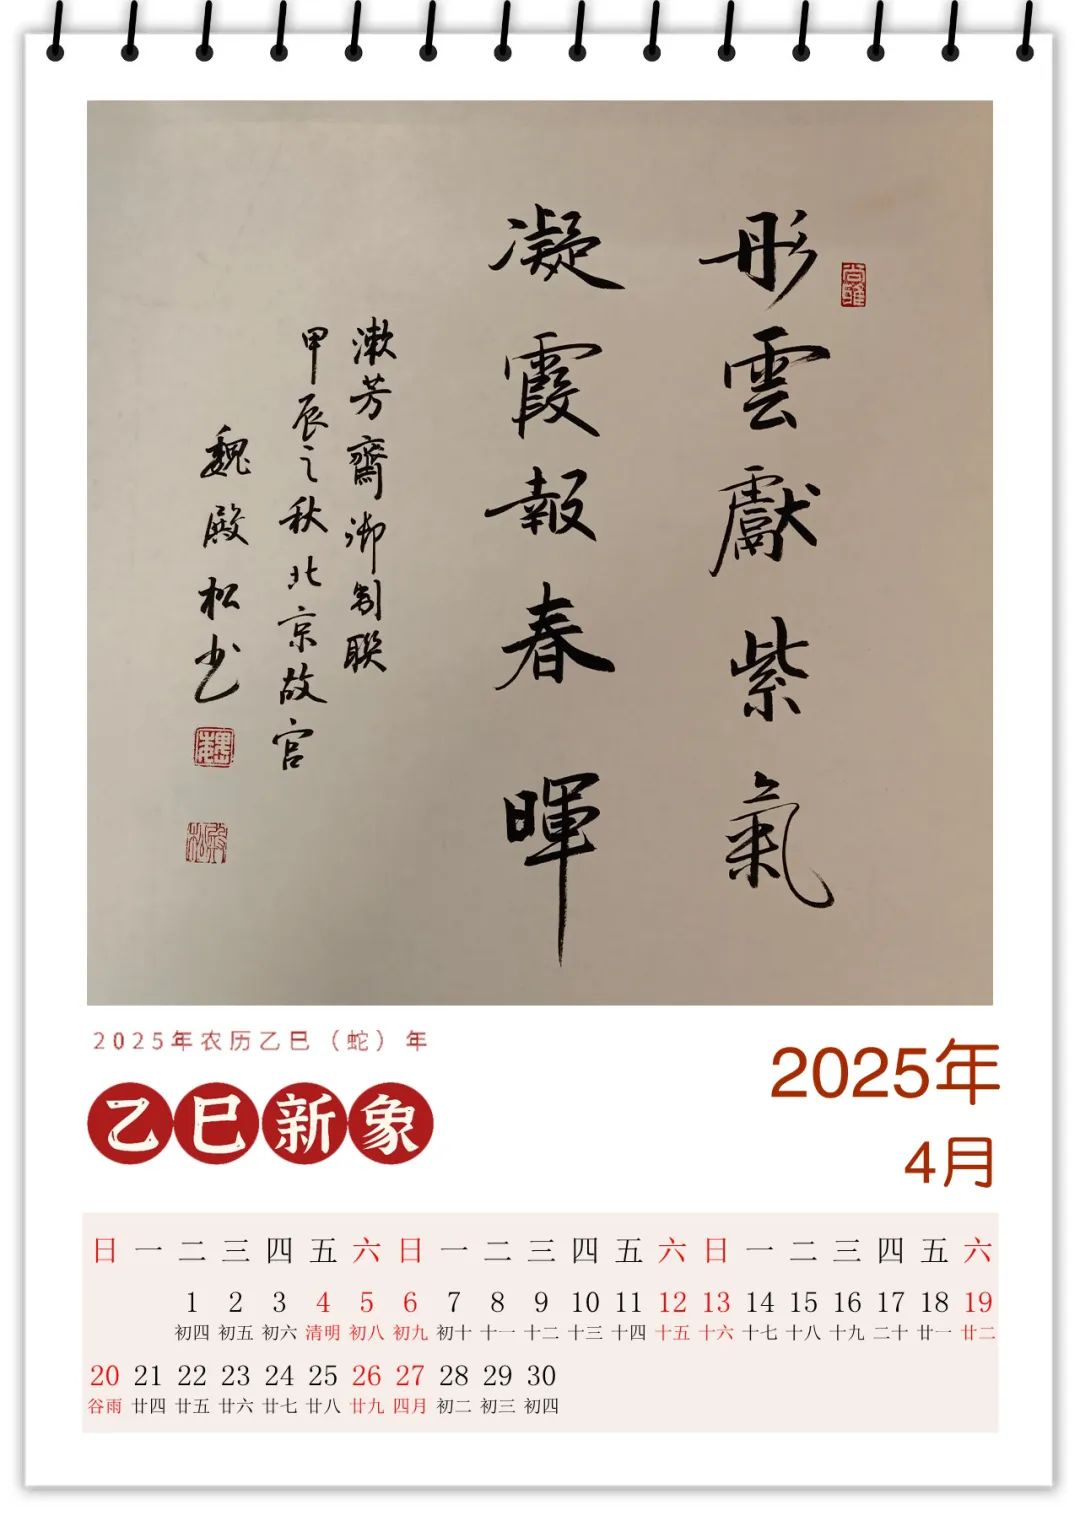 彤雲獻紫氣
凝霞報春暉
漱芳齋御制聯
甲辰之秋北京故宫
魏殿松书
尚雅
魏
殿松
2025年农历乙巳（蛇）年
乙巳新象
2025年
4月
日 一 二 三 四 五 六 日 一 二 三 四 五 六 日 一 二 三 四 五 六
1 2 3 4 5 6 7 8 9 10 11 12 13 14 15 16 17 18 19
初四 初五 初六 清明 初八 初九 初十 十一 十二 十三 十四 十五 十六 十七 十八 十九 二十 廿一 廿二
20 21 22 23 24 25 26 27 28 29 30
谷雨 廿四 廿五 廿六 廿七 廿八 廿九 四月 初二 初三 初四